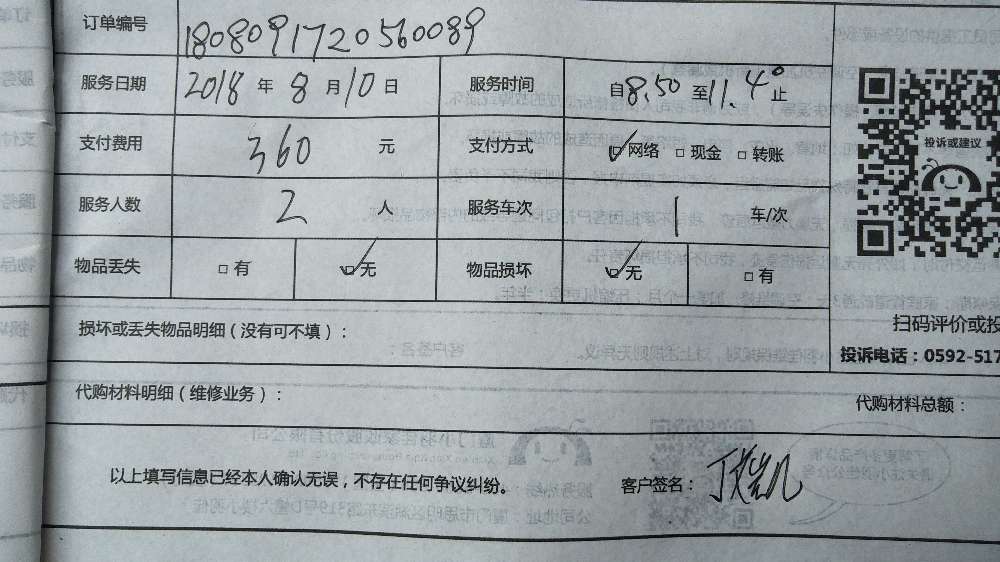 订单编号 1808091720560089
服务日期 2018 年 8 月 10 日 服务时间 自 8.50 至 11.40 止
支付费用 360 元 支付方式 ☑网络 □现金 □转账
投诉或建议
服务人数 2 人 服务车次 1 车/次
物品丢失 □有 ☑无 物品损坏 ☑无 □有
损坏或丢失物品明细（没有可不填）：
扫码评价或投
投诉电话：0592-517
代购材料明细（维修业务）：
代购材料总额：
以上填写信息已经本人确认无误，不存在任何争议纠纷。 客户签名：